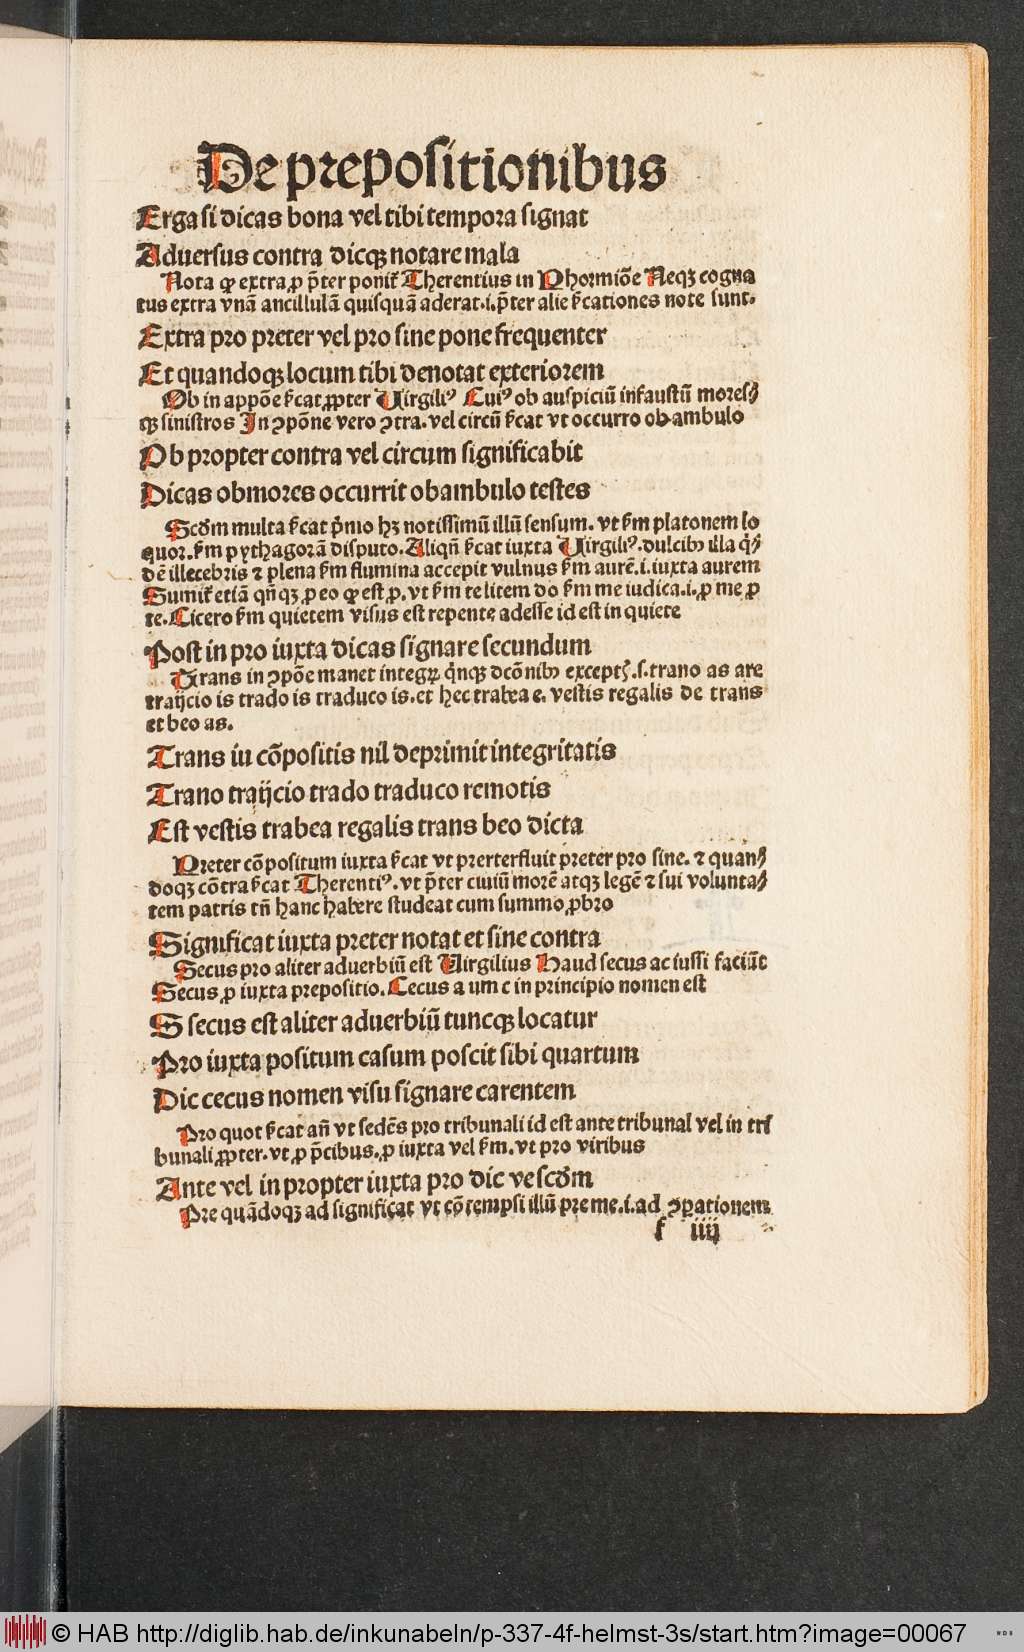 De prepositionibus
Erga si dicas bona vel tibi tempora signat
Aduersus contra dicqꝫ notare mala
Nota ꝙ extra ꝓ p̄ter ponit᷑ Therentius in Phormiōe Neqꝫ cogna
tus extra vnā ancillulā quisquā aderat.i.p̄ter alie s̄cationes note sunt.
Extra pro preter vel pro sine pone frequenter
Et quandoqꝫ locum tibi denotat exteriorem
Ob in appōe s̄cat ꝓpter Uirgiliꝰ Cuiꝰ ob auspiciū infaustū mores
qꝫ sinistros In ꝯpōne vero ꝯtra.vel circū s̄cat vt occurro obambulo
Ob propter contra vel circum significabit
Dicas obmores occurrit obambulo testes
Scd̄m multa s̄cat p̄mo hꝫ notissimū illū sensum.vt s̄m platonem lo
quor.s̄m pythagorā disputo.Aliqn̄ s̄cat iuxta Uirgiliꝰ.dulcibꝫ illa
dē illecebris ⁊ plena s̄m flumina accepit vulnus s̄m aurē.i.iuxta aurem
Sumit᷑ etiā qn̄qꝫ ꝓ eo ꝙ est ꝓ.vt s̄m te litem do s̄m me iudica.i.ꝓ me ꝓ
te.Cicero s̄m quietem visus est repente adesse id est in quiete
Post in pro iuxta dicas signare secundum
Trans in ꝯpōe manet integrꝝ qͥnqꝫ dcōnibꝫ except.s.trano as are
traijcio is trado is traduco is.et hec trabea e.vestis regalis de trans
et beo as.
Trans iu cōpositis nil deprimit integritatis
Trano traijcio trado traduco remotis
Est vestis trabea regalis trans beo dicta
Preter cōpositum iuxta s̄cat vt prerterfluit preter pro sine.⁊ quan
doqꝫ cōtra s̄cat Therentiꝰ.vt p̄ter ciuiū morē atqꝫ legē ⁊ sui volunta
tem patris tn̄ hanc habere studeat cum summo ꝓbro
Significat iuxta preter notat et sine contra
Secus pro aliter aduerbiū est Uirgilius Haud secus ac iussi faciūt
Secus ꝓ iuxta prepositio.Cecus a um c in principio nomen est
S secus est aliter aduerbiū tuncqꝫ locatur
Pro iuxta positum casum poscit sibi quartum
Dic cecus nomen visu signare carentem
Pro quot s̄cat an̄ vt sedēs pro tribunali id est ante tribunal vel in tri
bunali ꝓpter.vt ꝓ p̄cibus.ꝓ iuxta vel s̄m.vt pro viribus
Ante vel in propter iuxta pro dic ve scd̄m
Pre quādoqꝫ ad significat vt cōtempsi illū pre me.i.ad ꝯꝑationem
f iiij
© HAB http://diglib.hab.de/inkunabeln/p-337-4f-helmst-3s/start.htm?image=00067